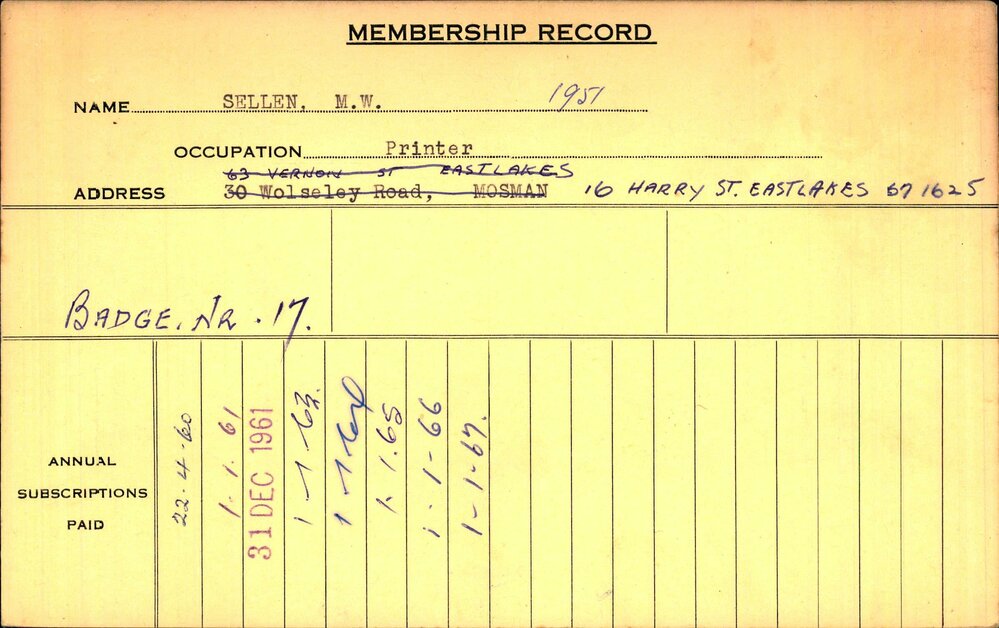 MEMBERSHIP RECORD
NAME SELLEN, M.W. 1951
OCCUPATION Printer
63 VERNON ST EASTLAKES
ADDRESS 30 Wolseley Road, MOSMAN 16 HARRY ST. EASTLAKES 67 1625
BADGE. NR. 17.
ANNUAL
SUBSCRIPTIONS
PAID
22-4-60
1-1-61
31 DEC 1961
1-1-63.
1-1-64
1-1.65
1-1-66
1-1-67.